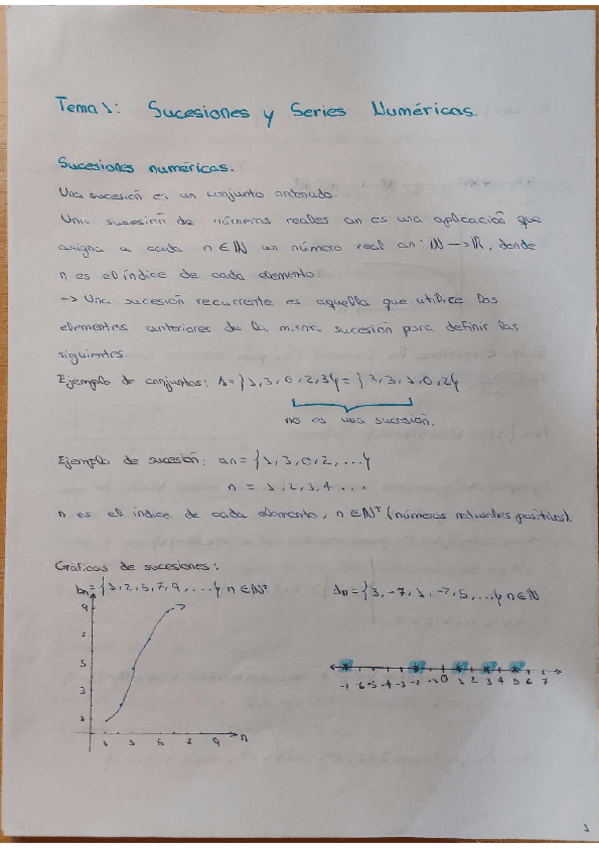 Tema 1: Sucesiones y Series Numéricas.
Sucesiones numéricas.
Una sucesión es un conjunto ordenado.
Una sucesión de números reales an es una aplicación que
asigna a cada n ∈ ℕ un número real an: ℕ → ℝ, donde
n es el índice de cada elemento.
→ Una sucesión recurrente es aquella que utilice los
elementos anteriores de la misma sucesión para definir los
siguientes.
Ejemplo de conjuntos: A = {1, 3, 0, 2, 3} = {3, 3, 1, 0, 2}
no es una sucesión.
Ejemplo de sucesión: an = {1, 3, 0, 2, ...}
n = 1, 2, 3, 4 ...
n es el índice de cada elemento, n ∈ ℕ⁺ (números naturales positivos).
Gráficas de sucesiones:
bn = {1, 2, 5, 7, 9, ...} n ∈ ℕ⁺
An = {3, -7, 1, -2, 5, ...} n ∈ ℕ
9
7
5
3
1
1 3 5 7 9 n
-7 -6 -5 -4 -3 -2 -1 0 1 2 3 4 5 6 7
1